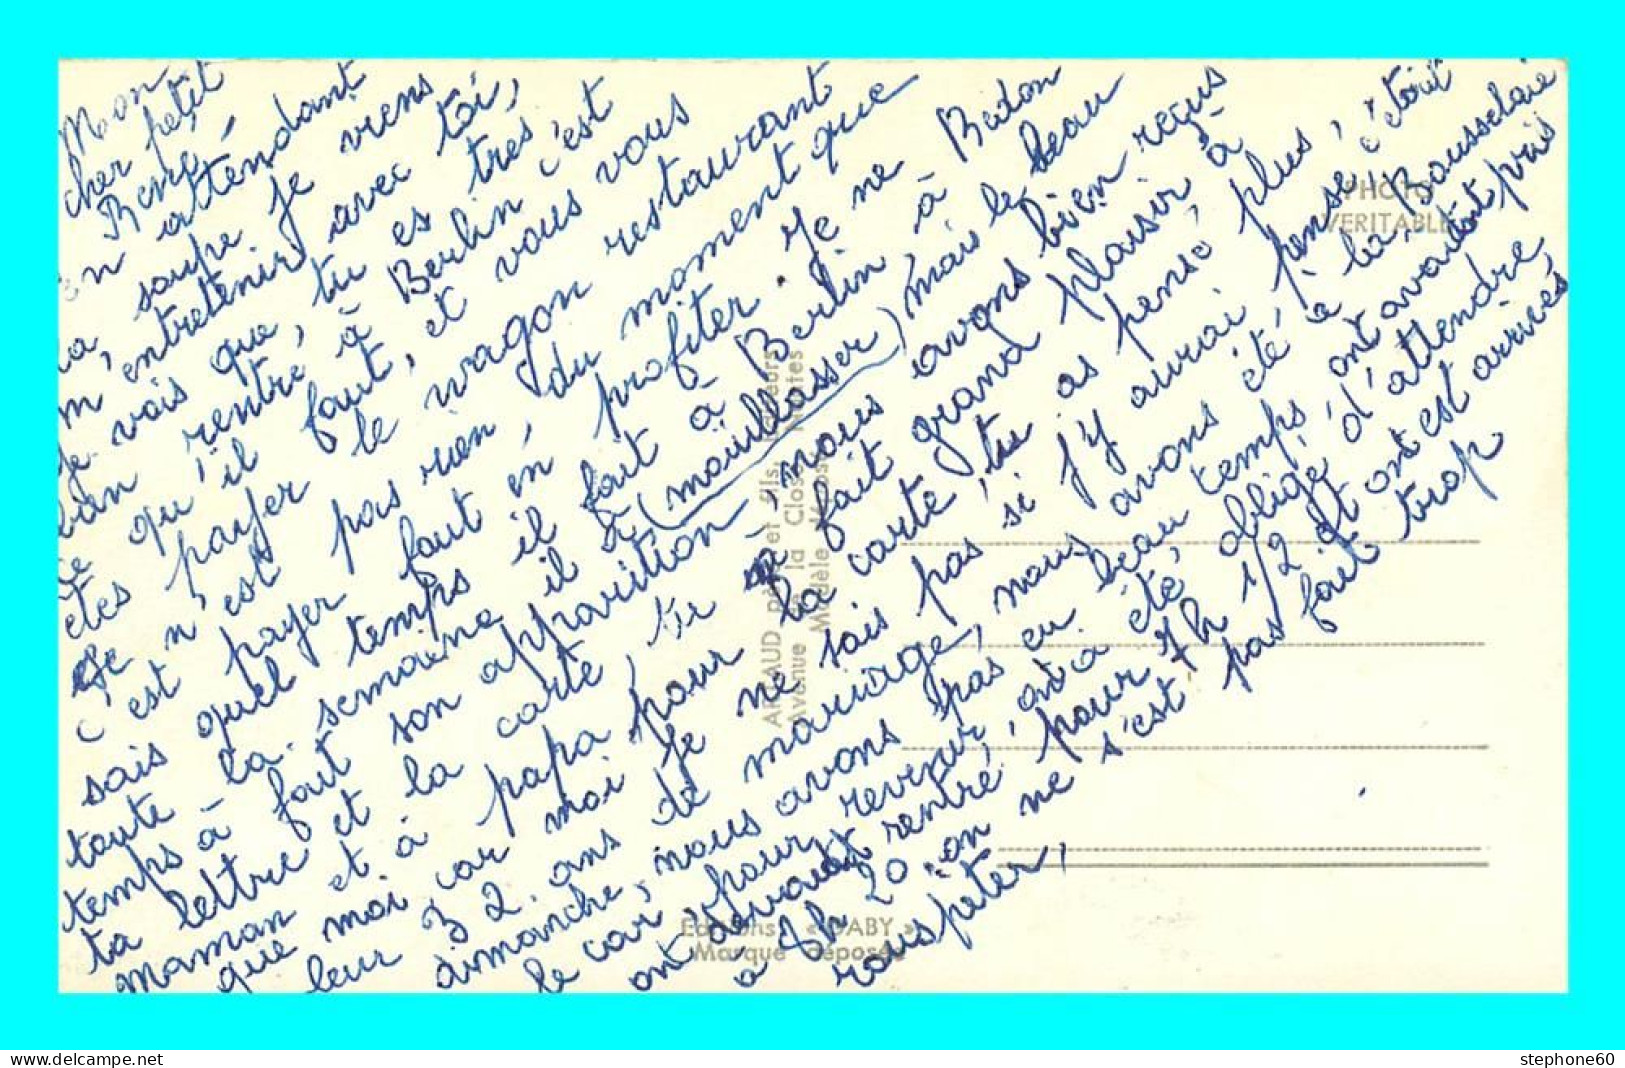 Mon
cher petit
René,
en attendant
la soupe je viens
m'entretenir avec toi,
Je vois que, tu es très
bien rentré à Berlin c'est
ce qu'il faut, et vous vous
êtes payer le wagon restaurant
Je n'est pas rien, du moment que
c'est payer faut en profiter. Je ne
sais quel temps il fait à Berlin, à Bedon
toute la semaine il a (mouillasser) mais le beau
temps à fait son apparition, nous avons bien reçus
ta lettre et la carte, tu a fait grand plaisir à
maman et à papa pour la carte, tu as pensé, à
que moi car moi je ne sais pas si j'y aurai pensé
leur 32 ans de mariage, nous avons été, à la Bausselaie
dimanche, nous avons pas eu beau temps, ont avait pris
le car, pour revenir, ont a été, obligé d'attendre
ont devait rentré pour 7h 1/2 et ont est arrivés
a 8h 20 on ne s'est pas fait trop
rouspéter,
plus, c'était
PHOTO
VERITABLE
ARTAUD père et fils, Editeurs
Avenue de la Close Nantes
Modèle déposé
Editions « GABY »
Marque déposée
stephone60
www.delcampe.net